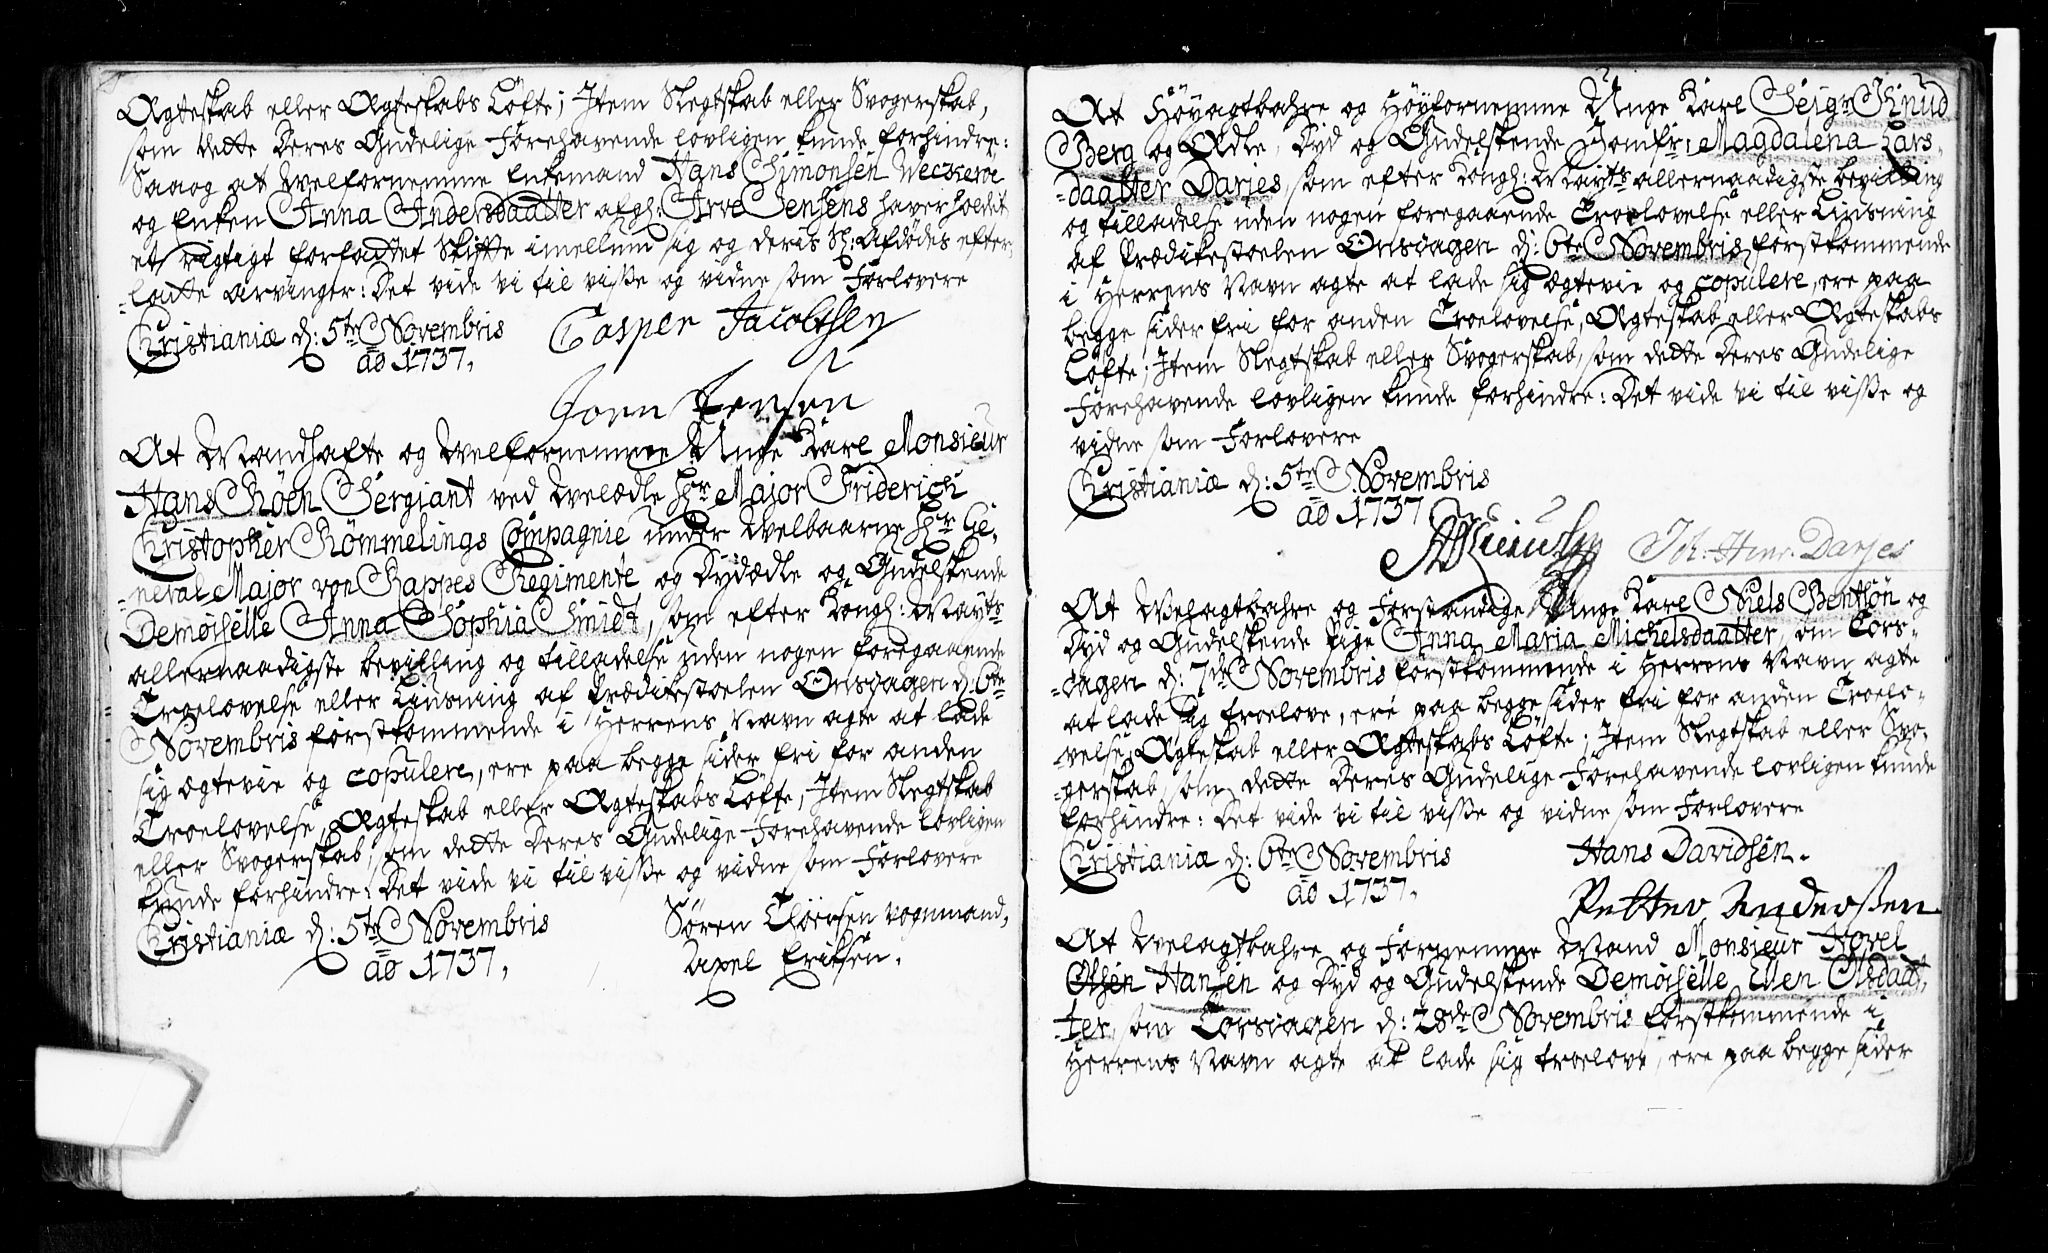 Ægteskab eller Ægteskabs Løfte; Item Slegtskab eller Svogerskab,
som dette Deres Gudelige Forehavende lovligen kunde forhindre:
Saa og at Velfornemme Enkemand Hans Simonsen Weckerø
og Enken Anna Andersdaatter afg: Arve Jensens haver holdet
et rigtigt forfattet Skifte imellum sig og deris Sl: Afdødes efter-
-ladte arvinger: Det vide vi til visse og vidne som Forlovere
Christianiæ d: 5te Novembris Casper Jacobsen
ao 1737.
Joen Jensen
At Mandhafte og Velfornemme Unge Karl Monsieur
Hans Røen Sergiant ved Velædle Hr Major Friderich
Christopher Rømmelings Compagnie under Velbaarne Hr Ge-
-neral Major von Rappes Regimente og Dydædle og Gudelskende
Demoiselle Anna Sophia Smidt, som efter Kongl: Mayts
allernaadigste bevilling og tilladelse uden nogen foregaaende
Troelovelse eller Liusning af Prædikestoelen Onsdagen d: 6te
Novembris førstkommende i Herrens Navn agte at lade
sig ægtevie og copulere, ere paa begge sider fri for anden
Troelovelse, Ægteskab eller Ægteskabs Løfte, Item Slegtskab
eller Svogerskab, som dette Deres Gudelige Forehavende lovligen
kunde forhindre: Det vide vi til visse og vidne som Forlovere
Christianiæ d: 5te Novembris Søren vognmand,
ao 1737, Axel Eriksen.
At Høyagtbahre og Høyfornemme Unge Karl Seigr Knud
Berg og Ædle, Dyd og Gudelskende Jomfr: Magdalena Lars-
-daatter Darjes, som efter Kongl: Mayts allernaadigste bevilling
og tilladelse uden nogen foregaaende Troelovelse eller Liusning
af Prædikestoelen Onsdagen d: 6te Novembris førstkommende
i Herrens Navn agte at lade sig ægtevie og copulere, ere paa
begge sider fri for anden Troelovelse, Ægteskab eller Ægteskabs
Løfte; Item Slegtskab eller Svogerskab, som dette Deres Gudelige
Forehavende lovligen kunde forhindre: Det vide vi til visse og
vidne som Forlovere
Christianiæ d: 5te Novembris
ao 1737
Joh: Hinr: Darjes
At Velagtbahre og Forstandige Unge Karl Niels Bentsøn og
Dyd og Gudelskende Pige Anna Maria Michelsdaatter, som Tors-
-dagen d: 7de Novembris førstkommende i Herrens Navn agte
at lade sig troelove, ere paa begge sider fri for anden Troelo-
-velse, Ægteskab eller Ægteskabs Løfte; Item Slegtskab eller Svo-
-gerskab, som dette Deres Gudelige Forehavende lovligen kunde
forhindre: Det vide vi til visse og vidne som Forlovere
Christianiæ d: 6te Novembris Hans Davidsen.
ao 1737. Petter Andersen
At Velagtbahre og Fornemme Mand Monsieur Hovel
Olsen Hansen og Dyd og Gudelskende Demoiselle Ellen Olsdaat-
-ter, som Torsdagen d: 28de Novembris førstkommende i
Herrens Navn agte at lade sig troelove, ere paa begge sider